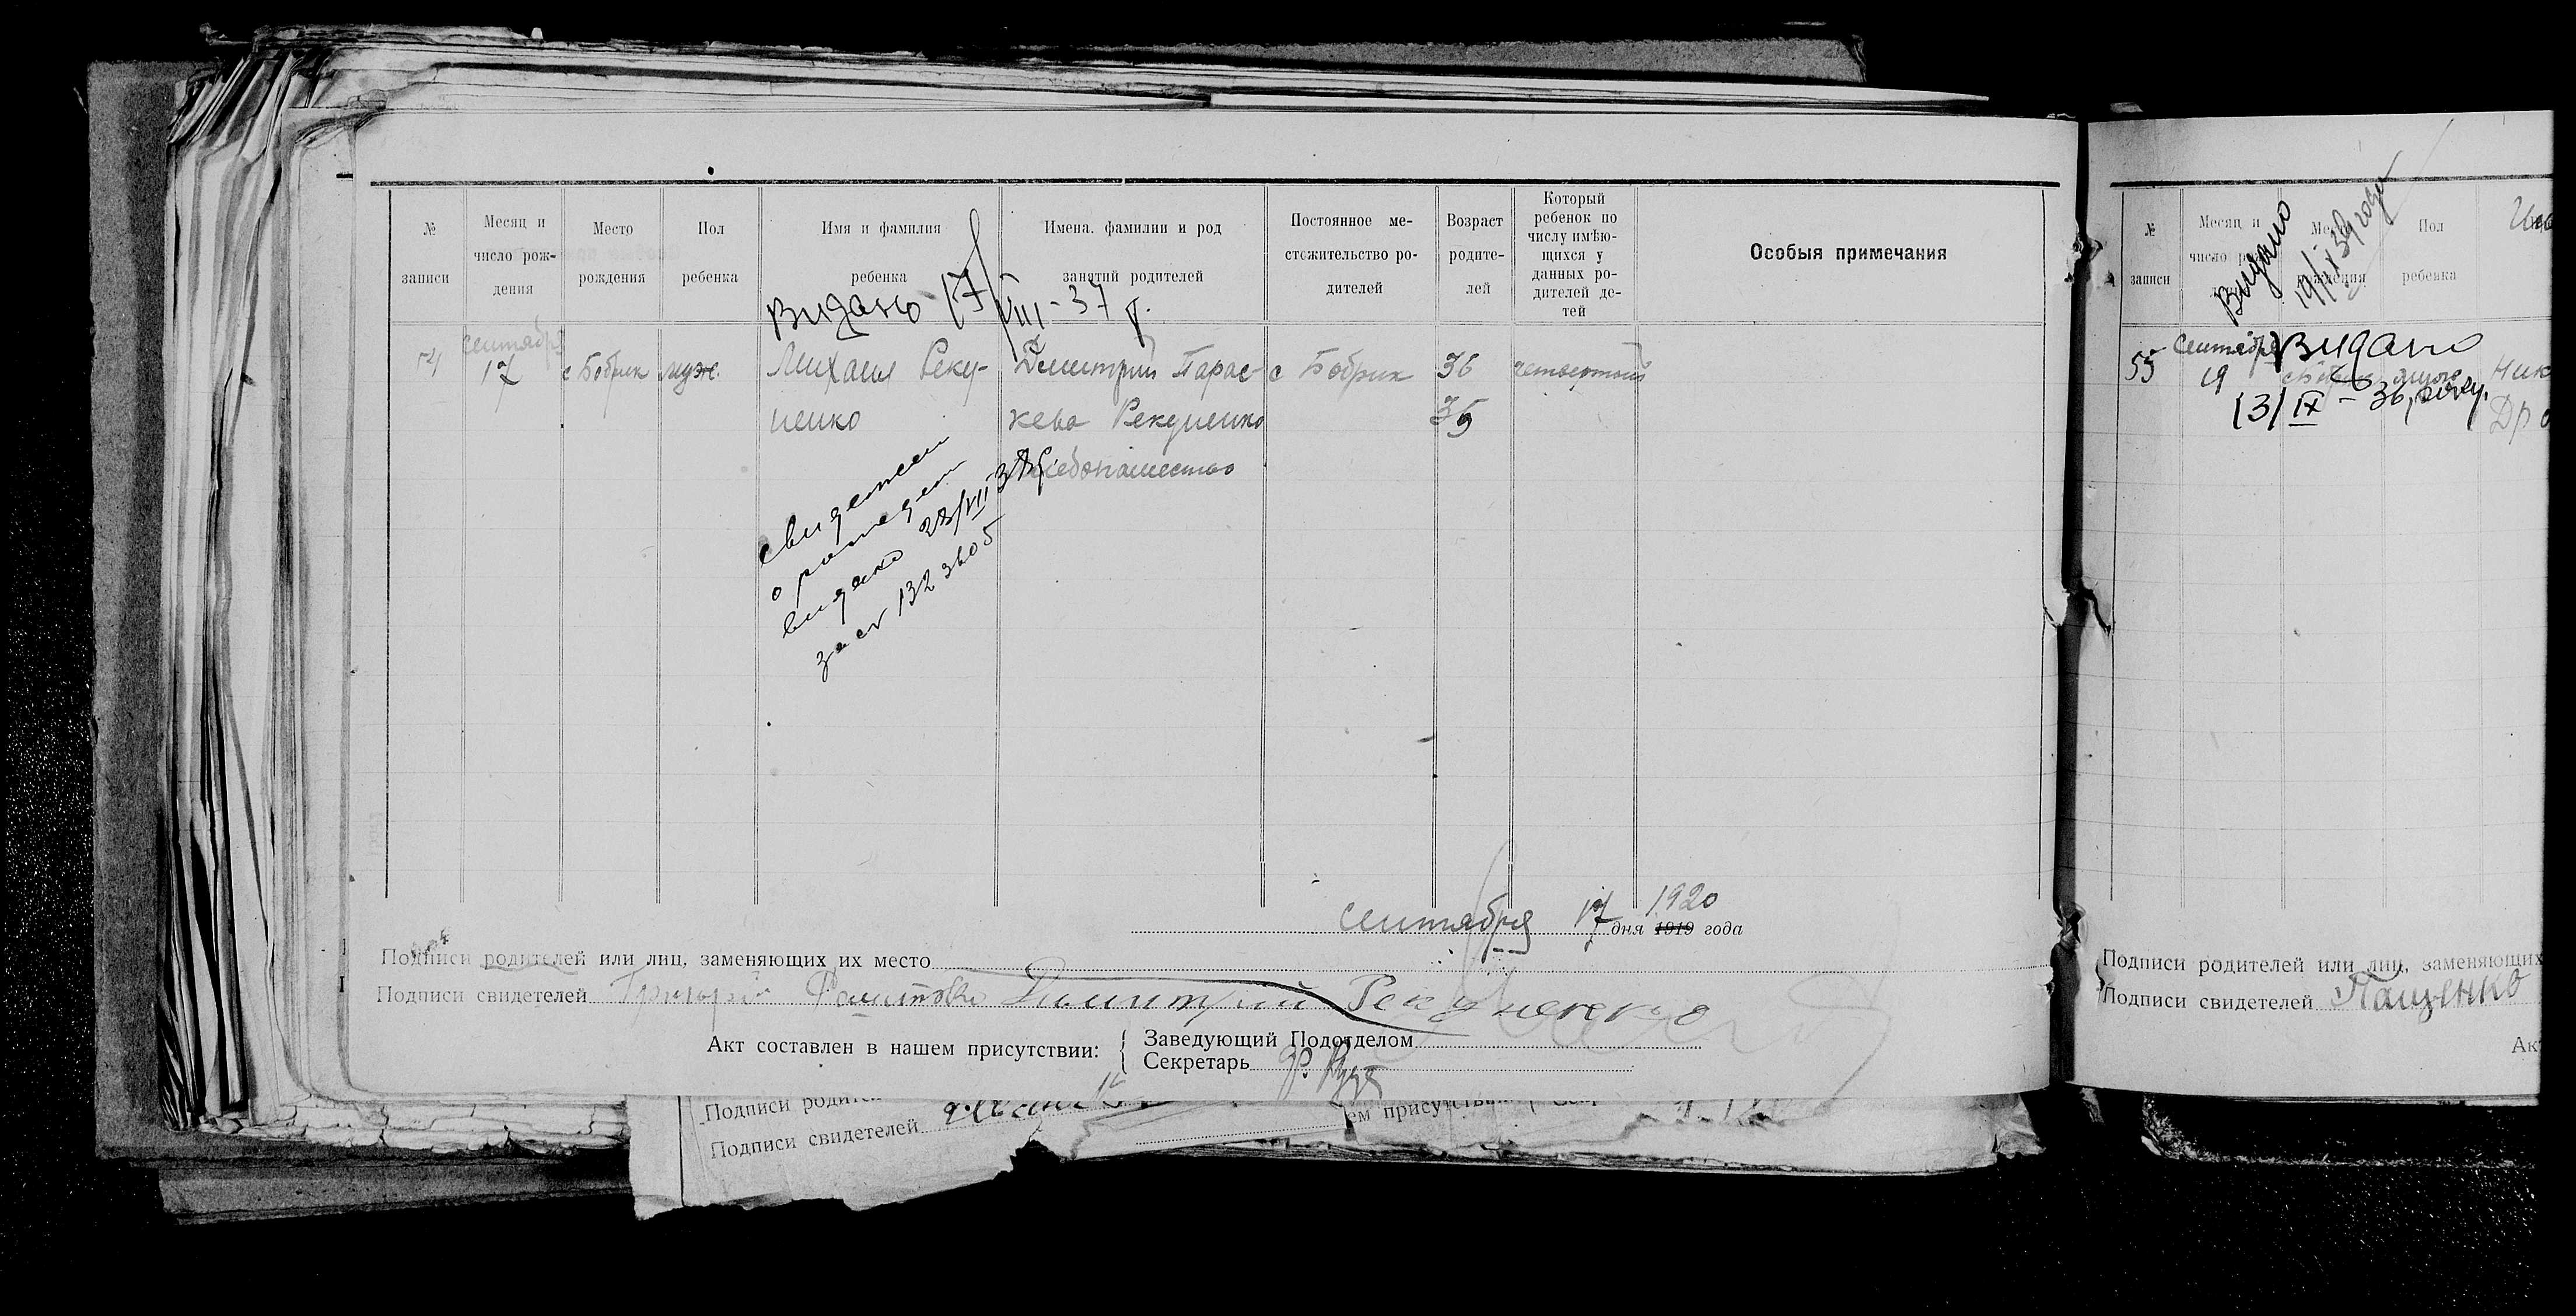 № записи
Месяц и число рож- дения
Место рождения
Пол ребенка
Имя и фамилия ребенка
Имена, фамилии и род занятий родителей
Постоянное ме- стожительство ро- дителей
Возраст родите- лей
Который ребенок по числу имѣю- щихся у данных ро- дителей де- тей
Особыя примечания
Видано 17/VIII-37 р.
54
сентября
17
с Бобрик
муж.
Михаил Реку-
ненко
Дмитрий Парас-
кева Рекуненко
хлебопашество
с Бобрик
36
35
четвертый
о
видано 28/VII
за № 132
сентября 17 дня 1919 года
1920
Подписи родителей или лиц, заменяющих их место
Подписи свидетелей Григорий
Димитрий Рекуненко
Акт составлен в нашем присутствии:
Заведующий Подотделом
Секретарь
Подписи
Подписи свидетелей
ем присутствии:
№ записи
Месяц и число
Пол ребенка
Видано
19/IX 39 году
55
сентября
19
Видано
13/IX - 36 року.
Ник
Подписи родителей или лиц, заменяющих
Подписи свидетелей Пащенко
Ак